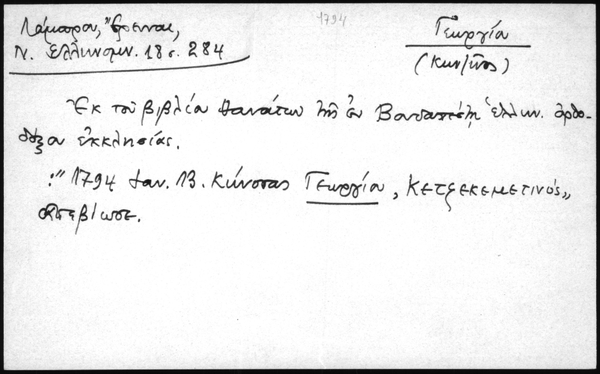 Λάμπρου, Ἔρευναι,
Ν. Ἑλληνομν. 18 σ. 284
1794
Γεωργία
(Κων/ῖνος)
Ἐκ τοῦ βιβλίου θανάτων τῆς ἐν Βουδαπέστῃ ἑλλην. ὀρθο-
δόξου ἐκκλησίας.
:"1794 Ιαν. 13. Κώνστας Γεωργίου, Κετζεκεμετινός„
ἀπεβίωσε.